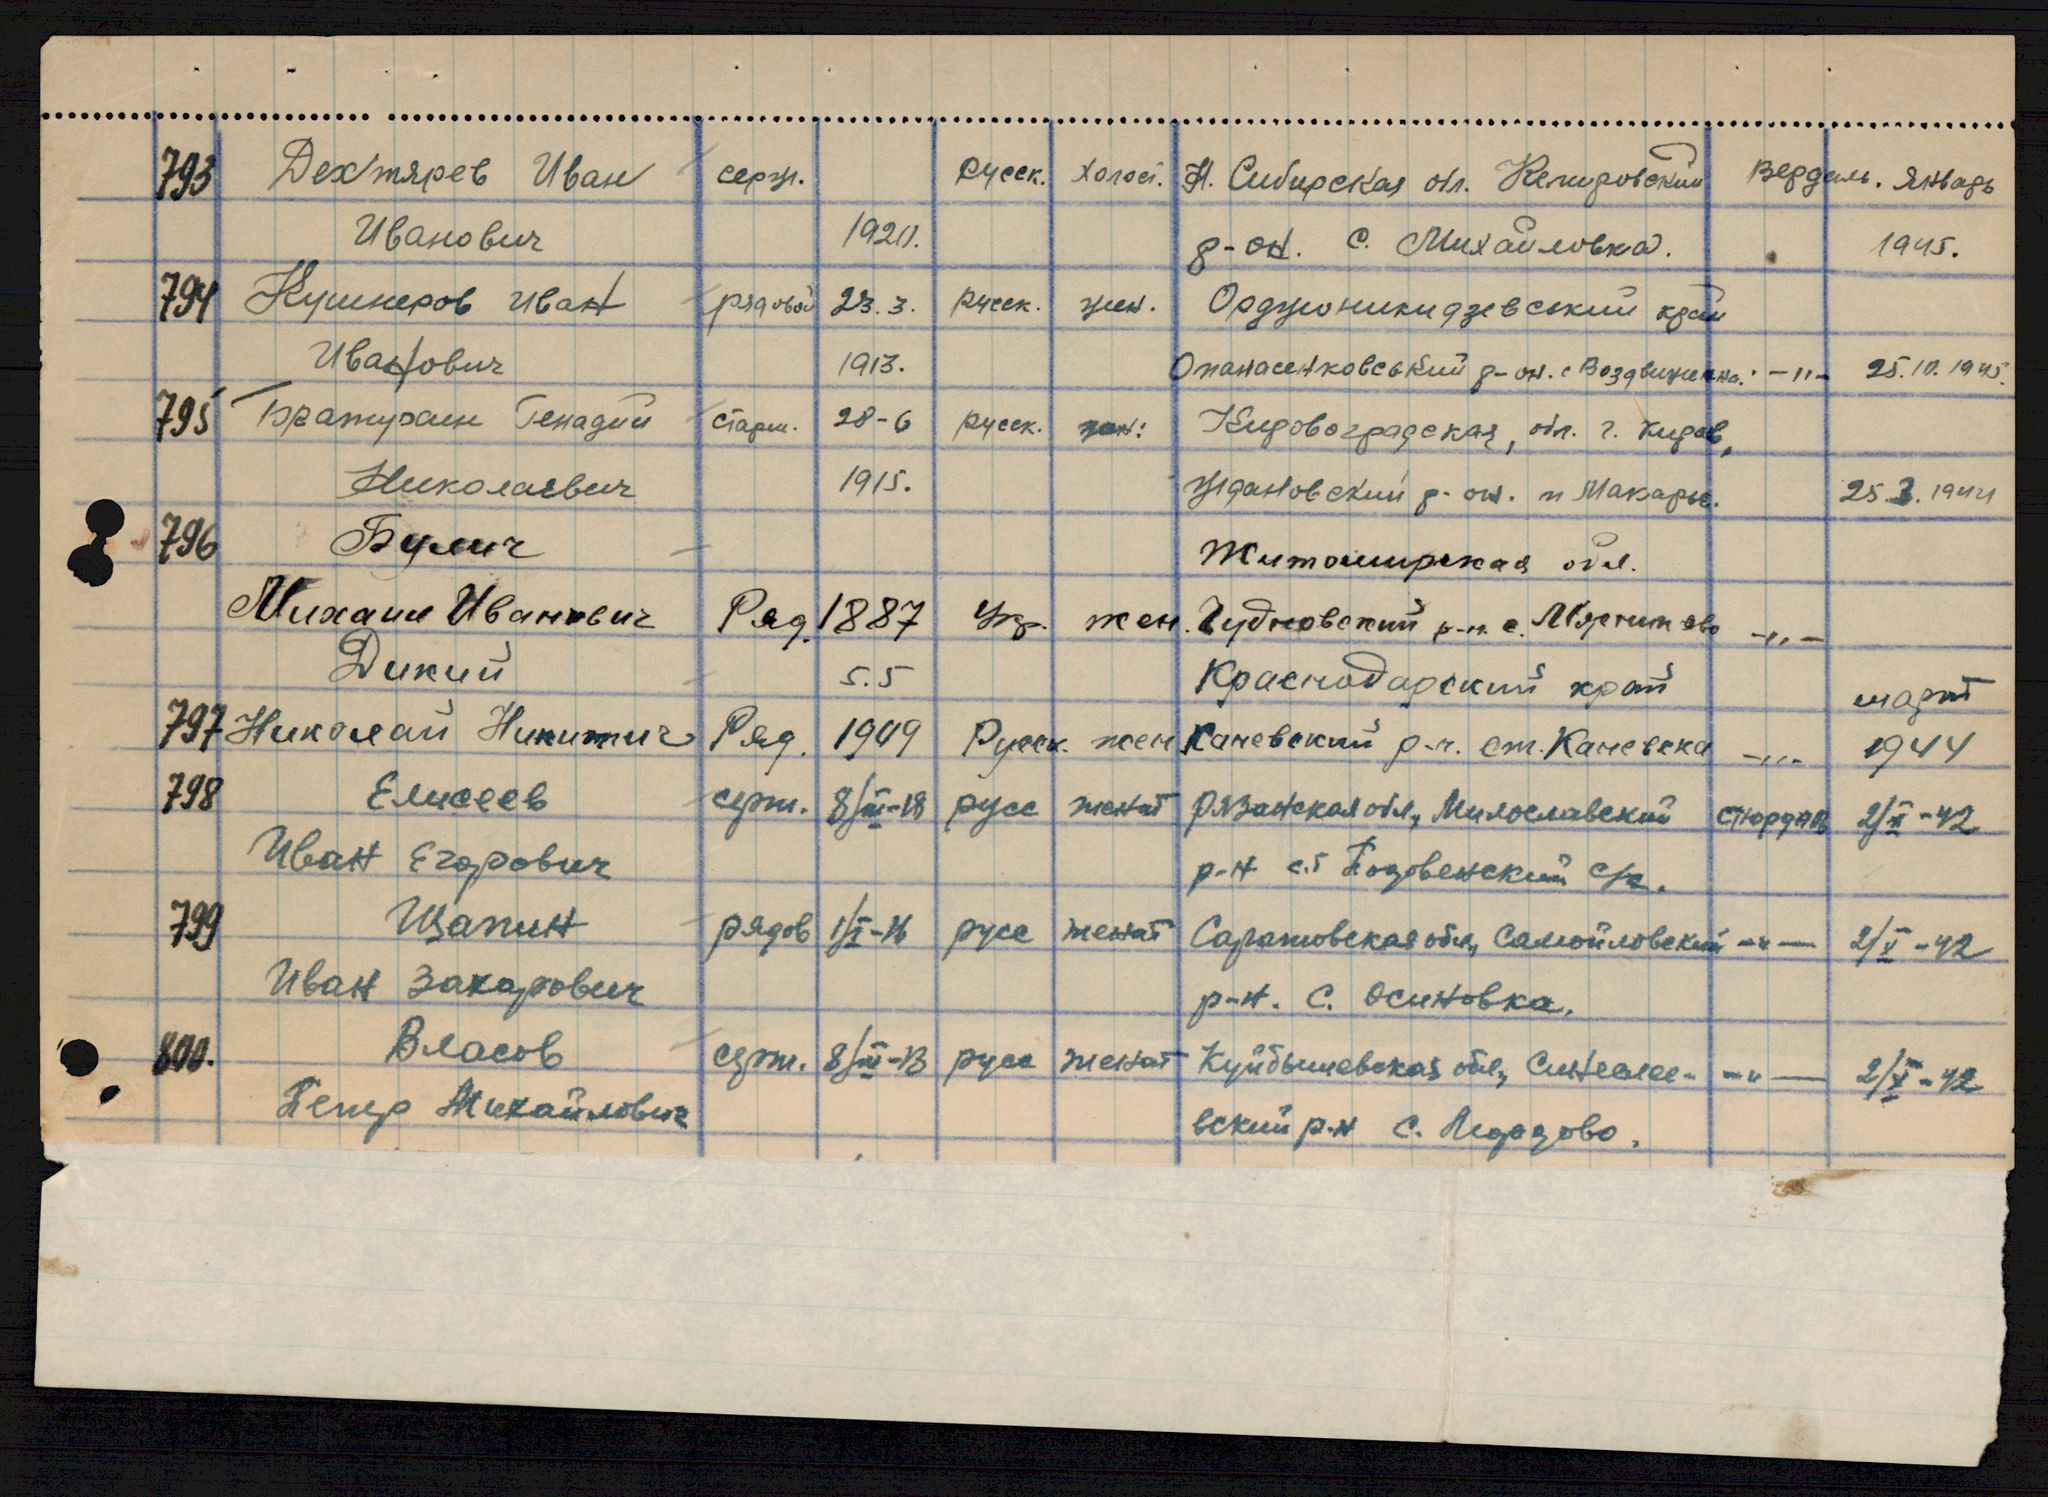 793 Дехтярев Иван серж. русск. холост. Н. Сибирская обл. Кемировский Вердаль. Январь
Иванович 1920. р-он. с. Михайловка. 1945.
794 Кушнеров Иван рядовой 23.3. русск. жен. Орджоникидзевский край
Иванович 1913. Опанасенковський р-он. с Воздвиженка. -"- 25.10.1945.
795 Генадий старш. 28-6 русск. жен. Кировоградская, обл. г. Киров,
Николаевич 1915. Ждановский р-он. п Макарье. 25.3.1944
796 Булич Житомирская обл.
Михаил Иванович Ряд. 1887 Укр. жен. Чудновский р-н. с. -"-
Дикий 5.5 Краснодарский край март
797 Николай Никитич Ряд. 1909 Русск. жен Каневский р-н. ст. Каневска -"- 1944
798 Елисеев серж. 8/III-18 русс женат Рязанская обл, Милославский Стюрдал 2/X-42
Иван Егорович р-н с/с.
799 Щапин рядов 1/I-16 русс женат Саратовская обл, Самойловский -"- 2/X-42
Иван Захарович р-н. с. Осиновка.
800. Власов серж. 8/III-13 русс женат Куйбышевская обл, -"- 2/X-42
Петр Михайлович вский р-н с.